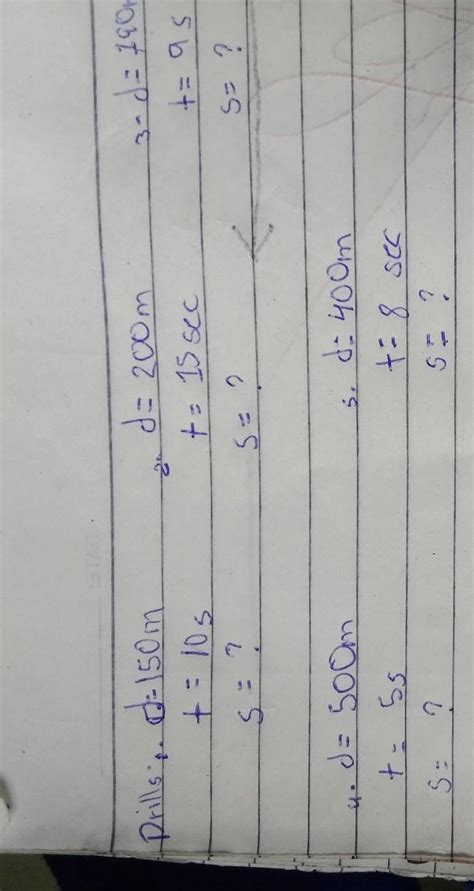 Drills:. 1. d=150m
t = 10s
s = ?
2. d= 200m
t = 15 sec
s = ?
3- d= 190m
t = 9s
s= ?
4. d= 500m
t = 5s
s= ?
5. d= 400m
t= 8 sec
s= ?